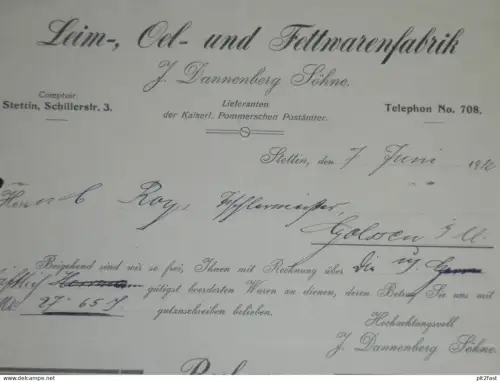 Leim-, Oel- und Fettwarenfabrik
J. Dannenberg Söhne.
Comptoir:
Stettin, Schillerstr. 3.
Lieferanten
der Kaiserl. Pommerschen Postämter.
Telephon No. 708.
Stettin, den 7 Juni 19
Herrn C Tischlermeister,
Beigehend sind wir so frei, Ihnen mit Rechnung über die
gütigst beorderten Waren zu dienen, deren Betrag Sie uns mit
Mk 27.65
gutzuschreiben belieben.
Hochachtungsvoll
J. Dannenberg Söhne.
www.delcampe.net
pit2fast